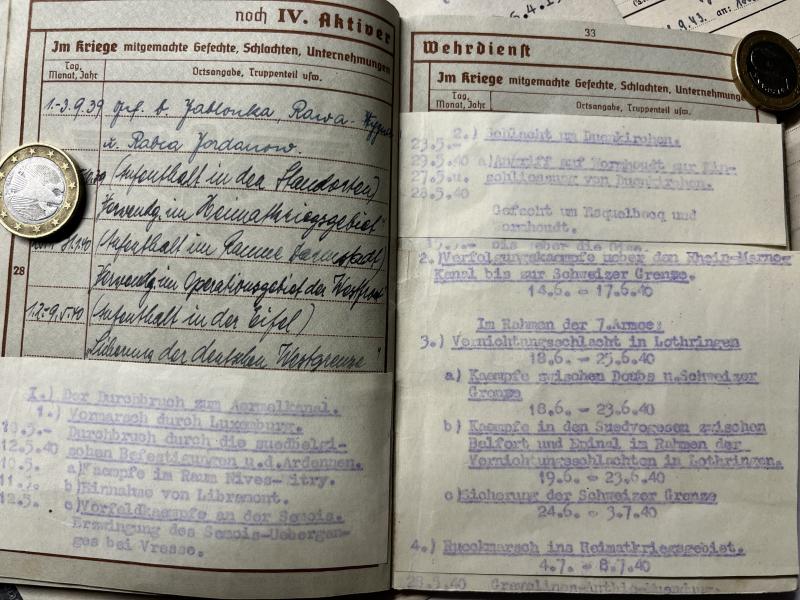 noch IV. Aktiver
Im Kriege mitgemachte Gefechte, Schlachten, Unternehmungen
Tag, Monat, Jahr
Ortsangabe, Truppenteil usw.
1.-3.9.39 Gef. b. Jablonka, Rawa-
u. Rabca Jordanow.
(Aufenthalt in den Standorten)
Verwendg. im Heimatkriegsgebiet"
(Aufenthalt im Raume Darmstadt)
Verwendg. im Operationsgebiet der
28
(Aufenthalt in der Eifel)
"Sicherung der deutschen Westgrenze"
I.) Der Durchbruch zum Aermelkanal.
1.) Vormarsch durch Luxemburg.
10.5.- Durchbruch durch die suedbelgi-
12.5.40 schen Befestigungen u.d.Ardennen.
10.5. a) Kaempfe im Raum Nives-Vitry.
11.5. b) Einnahme von Libramont.
12.5. c) Vorfeldkaempfe an der Semois.
Erzwingung des Semois-Uebergan-
ges bei Vresse.
33
Wehrdienst
Im Kriege mitgemachte Gefechte, Schlachten, Unternehmungen
Tag, Monat, Jahr
Ortsangabe, Truppenteil usw.
2.) Schlacht um Duenkirchen.
23.5.-
29.5.40 a) Angriff auf Wormhoudt zur Ein-
27.5.u. schliessung von Duenkirchen.
28.5.40
Gefecht um Esquelbecq und
Wormhoudt.
2.) Verfolgungskaempfe ueber den Rhein-Marne-
Kanal bis zur Schweizer Grenze.
14.6. - 17.6.40
Im Rahmen der 7.Armee:
3.) Vernichtungsschlacht in Lothringen
18.6. - 25.6.40
a) Kaempfe zwischen Doubs u.Schweizer
Grenze
18.6. - 23.6.40
b) Kaempfe in den Suedvogesen zwischen
Belfort und Epinal im Rahmen der
Vernichtungsschlachten in Lothringen.
19.6. - 23.6.40
c) Sicherung der Schweizer Grenze
24.6. - 3.7.40
4.) Rueckmarsch ins Heimatkriegsgebiet.
4.7. - 8.7.40
28.5.40